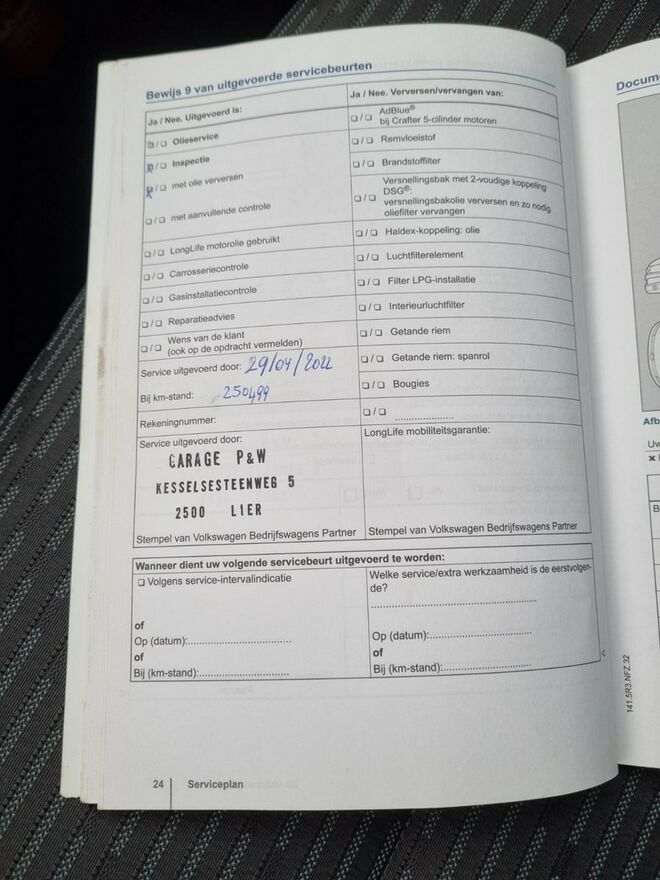 Bewijs 9 van uitgevoerde servicebeurten
Ja / Nee. Uitgevoerd is:
❏ / ❏ Olieservice
❏ / ❏ Inspectie
❏ / ❏ met olie verversen
❏ / ❏ met aanvullende controle
❏ / ❏ LongLife motorolie gebruikt
❏ / ❏ Carrosseriecontrole
❏ / ❏ Gasinstallatiecontrole
❏ / ❏ Reparatieadvies
❏ / ❏ Wens van de klant
(ook op de opdracht vermelden)
Service uitgevoerd door: 29/04/2022
Bij km-stand: 250499
Rekeningnummer:
Service uitgevoerd door:
GARAGE P&W
KESSELSESTEENWEG 5
2500 LIER
Stempel van Volkswagen Bedrijfswagens Partner
Ja / Nee. Verversen/vervangen van:
❏ / ❏ AdBlue®
bij Crafter 5-cilinder motoren
❏ / ❏ Remvloeistof
❏ / ❏ Brandstoffilter
❏ / ❏ Versnellingsbak met 2-voudige koppeling
DSG®:
versnellingsbakolie verversen en zo nodig
oliefilter vervangen
❏ / ❏ Haldex-koppeling: olie
❏ / ❏ Luchtfilterelement
❏ / ❏ Filter LPG-installatie
❏ / ❏ Interieurluchtfilter
❏ / ❏ Getande riem
❏ / ❏ Getande riem: spanrol
❏ / ❏ Bougies
❏ / ❏ .....................
LongLife mobiliteitsgarantie:
Stempel van Volkswagen Bedrijfswagens Partner
Wanneer dient uw volgende servicebeurt uitgevoerd te worden:
❏ Volgens service-intervalindicatie
of
Op (datum):................................
of
Bij (km-stand):............................
Welke service/extra werkzaamheid is de eerstvolgen-
de?
....................................................
Op (datum):................................
of
Bij (km-stand):............................
141.5R3.NFZ.32
24 Serviceplan
Docum
Afb
Uw
B